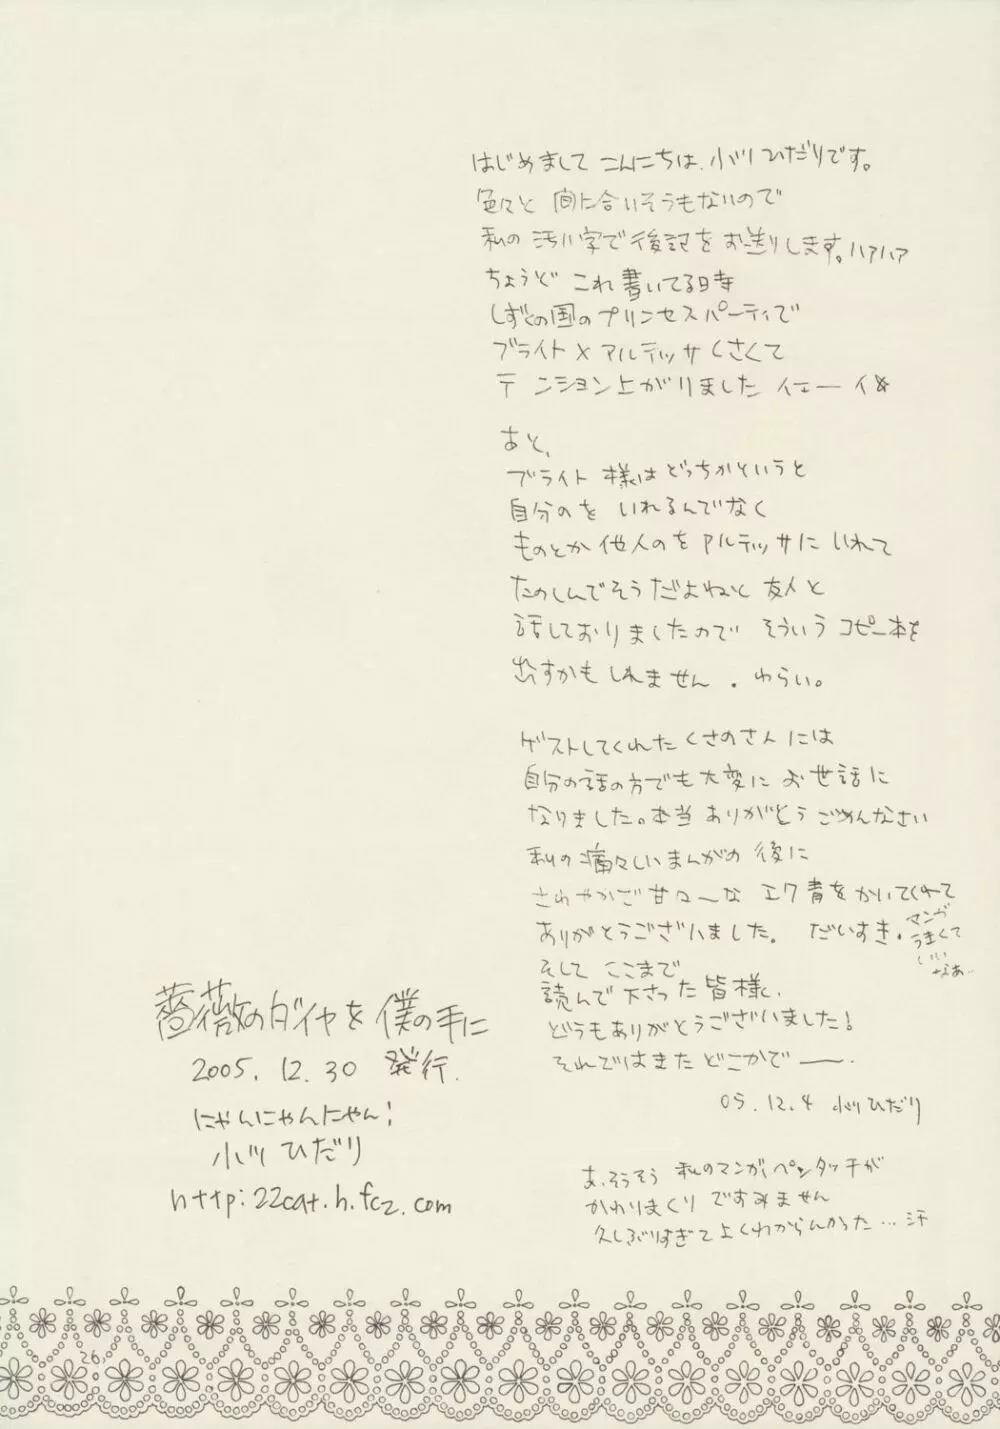 はじめまして こんにちは、小川ひだりです。
色々と 間に合いそうもないので
私の 汚い字で後記をお送りします。ハァハァ
ちょうど これ書いてる時
しずくの国のプリンセスパーティで
ブライト×アルテッサくさくて
テンション上がりました イエーイ☆
あと、
ブライト様はどっちかというと
自分のを いれるんでなく
ものとか他人のをアルテッサにいれて
たのしんでそうだよねと 友人と
話しておりましたので そういうコピー本を
出すかもしれません。わらい。
ゲストしてくれたくさのさんには
自分の話の方でも大変にお世話に
なりました。本当ありがとうごめんなさい
私の痛々しいまんがの後に
さわやかで甘々〜な エク青をかいてくれて
ありがとうございました。 だいすき。
マンガ
うまくて
いい
なあ…
そして ここまで
読んで下さった皆様、
どうもありがとうございました!
それではまた どこかで――.
05.12.4 小川ひだり
あ、そうそう 私のマンガ、ペンタッチが
かわりまくりですみません
久しぶりすぎてよくわからんかった…汗
薔薇のダイヤを僕の手に
2005.12.30 発行.
にゃんにゃんにゃん!
小川ひだり
http:22cat.h.fc2.com
26